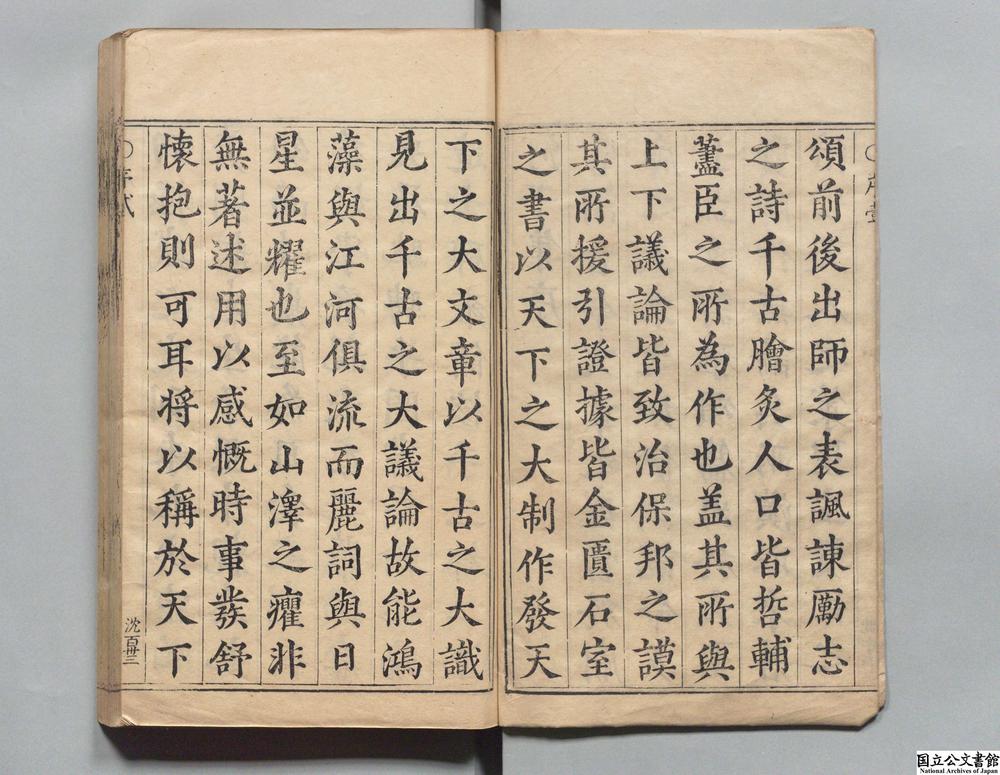 頌前後出師之表諷諫勵志
之詩千古膾炙人口皆哲輔
藎臣之所為作也盖其所與
上下議論皆致治保邦之謨
其所援引證據皆金匱石室
之書以天下之大制作發天
下之大文章以千古之大識
見出千古之大議論故能鴻
藻與江河俱流而麗詞與日
星並耀也至如山澤之癯非
無著述用以感慨時事發舒
懷抱則可耳将以稱於天下
沈百卅三
国立公文書館
National Archives of Japan